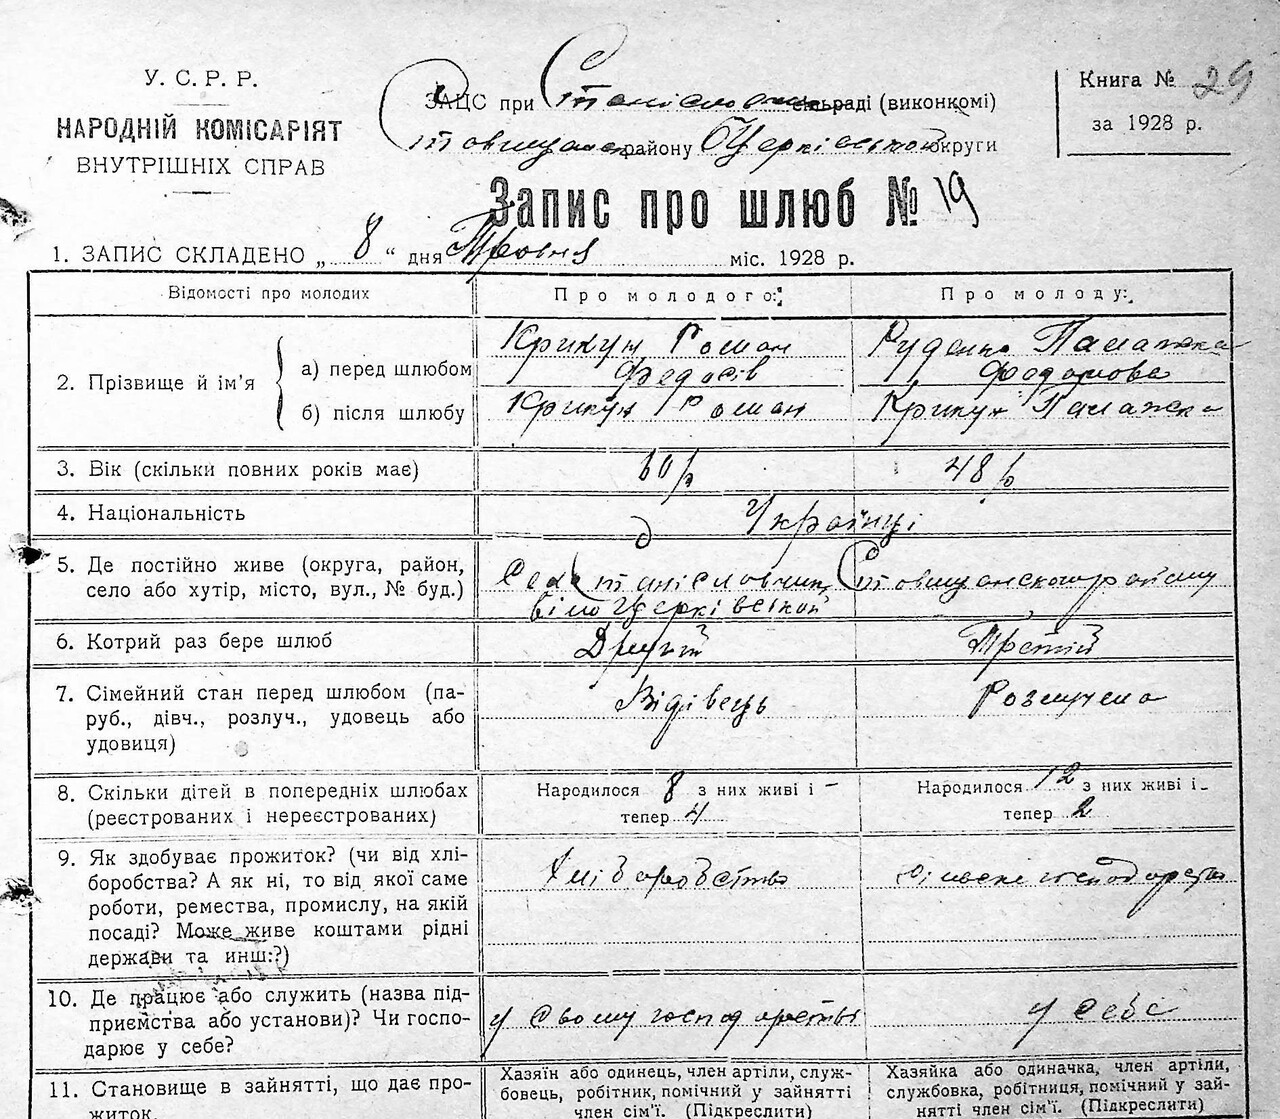 У. С. Р. Р.
НАРОДНІЙ КОМІСАРІЯТ
ВНУТРІШНІХ СПРАВ
ЗАЦС при сільраді (виконкомі)
району округи
Книга № 29
за 1928 р.
Запис про шлюб № 19
1. ЗАПИС СКЛАДЕНО „ 8 “ дня Травня міс. 1928 р.
Відомості про молодих
Про молодого:
Про молоду:
2. Прізвище й ім'я
а) перед шлюбом
Крикун Роман
Федосів
Руденко Палажка
Федорова
б) після шлюбу
Крикун Роман
Крикун Палажка
3. Вік (скільки повних років має)
60 р
48 р
4. Національність
Українці
5. Де постійно живе (округа, район,
село або хутір, місто, вул., № буд.)
Село Станіславчик, Ставищанского району
Біло Церківської
6. Котрий раз бере шлюб
Другий
Третій
7. Сімейний стан перед шлюбом (па-
руб., дівч., розлуч., удовець або
удовиця)
Відівець
Розлучена
8. Скільки дітей в попередніх шлюбах
(реєстрованих і нереєстрованих)
Народилося 8 з них живі і –
тепер 4
Народилося 12 з них живі і –
тепер 2
9. Як здобуває прожиток? (чи від хлі-
боробства? А як ні, то від якої саме
роботи, ремества, промислу, на якій
посаді? Може живе коштами рідні
держави та инш:?)
Хліборобство
господарство
10. Де працює або служить (назва під-
приємства або установи)? Чи госпо-
дарює у себе?
у свому господарстві
у себе
11. Становище в зайнятті, що дає про-
житок.
Хазяїн або одинець, член артіли, служ-
бовець, робітник, помічний у зайнятті
член сім'ї. (Підкреслити)
Хазяйка або одиначка, член артіли,
службовка, робітниця, помічний у зай-
нятті член сім'ї. (Підкреслити)